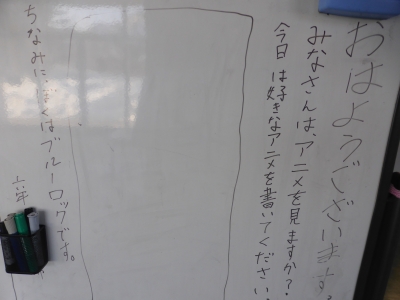 おはようございます。
みなさんは、アニメを見ますか?
今日は好きなアニメを書いてください!
ちなみに、ぼくはブルーロックです。
六年